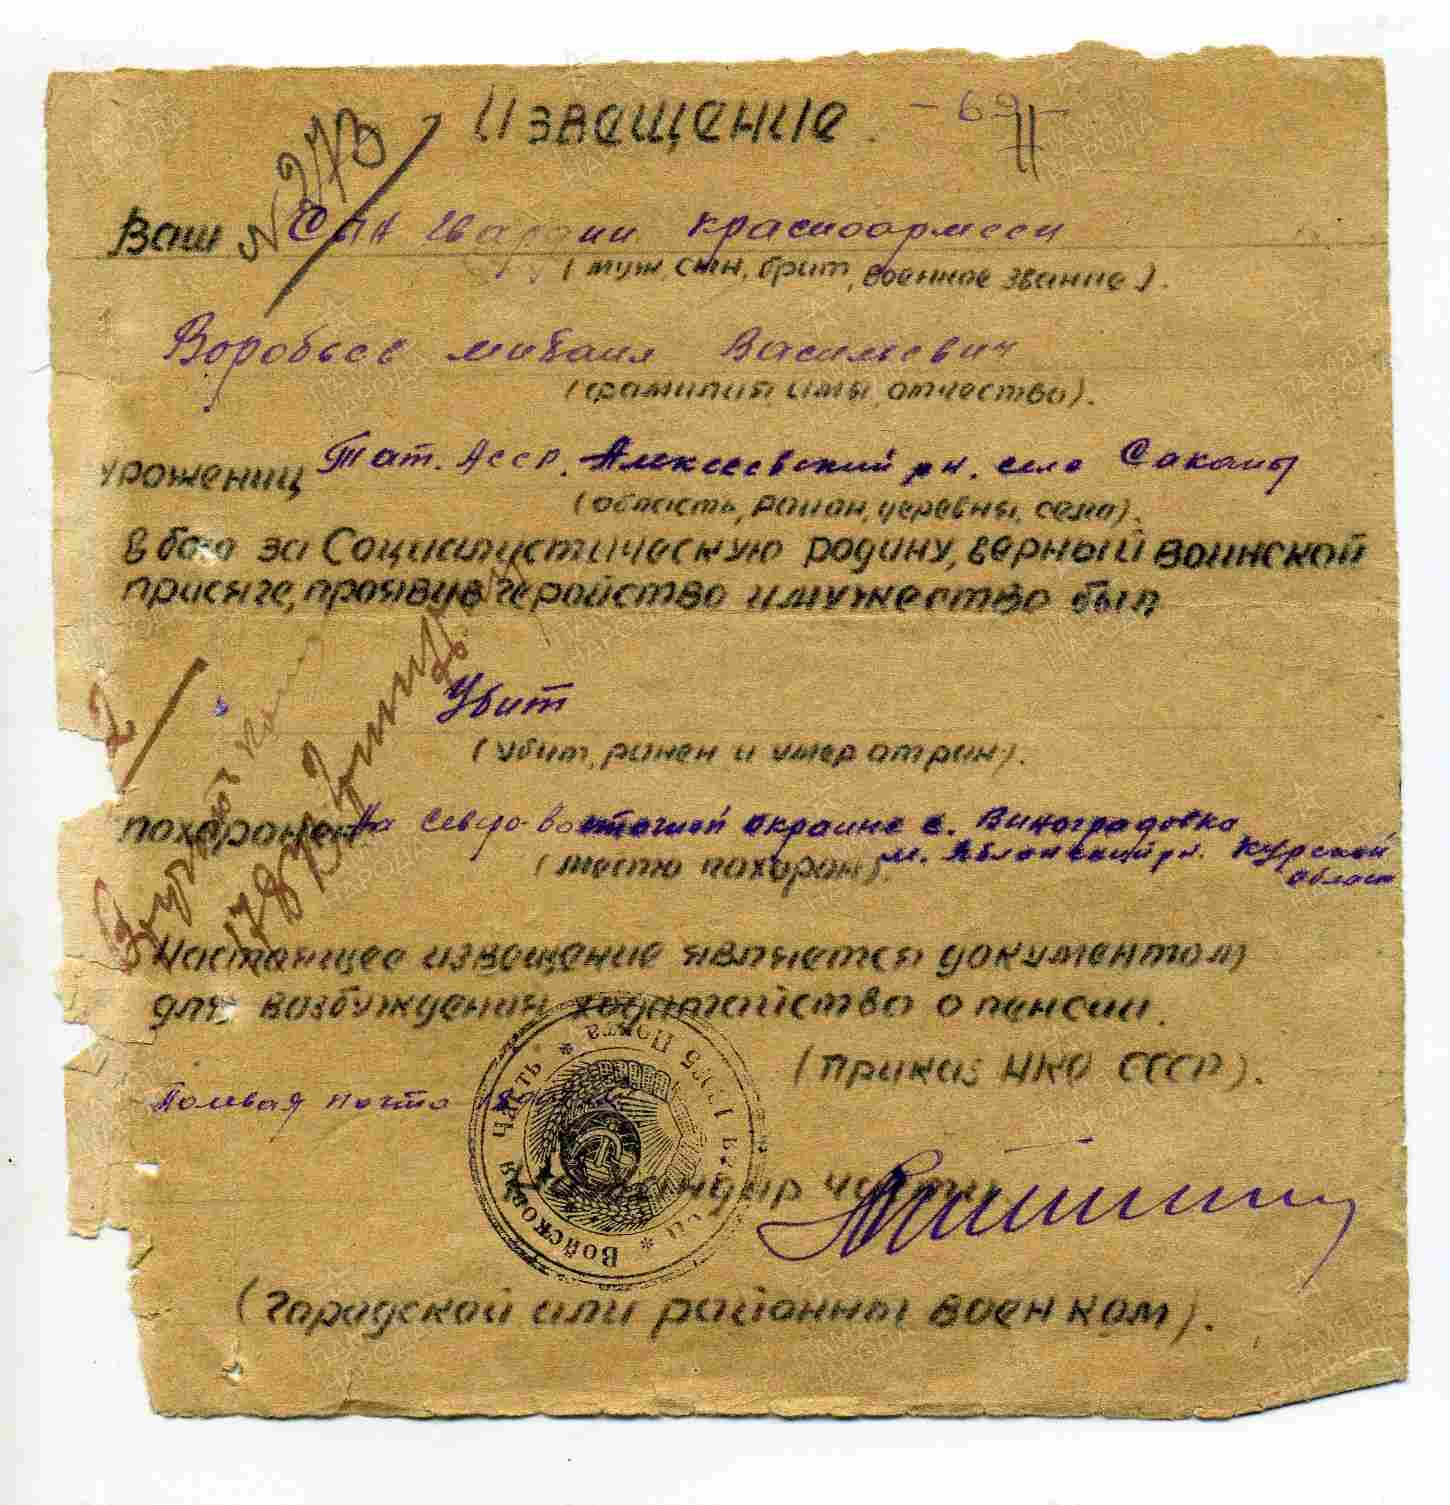 Извещение. - 69 -
№ 273
Ваш Сын гвардии красноармеец
(муж, сын, брат, военное звание).
Воробьев Михаил Васильевич
(фамилия, имя, отчество).
уроженец Тат. Асср. Алексеевский рн. село Саканы
(область, район, деревня, село).
в бою за Социалистическую родину, верный воинской
присяге, проявив геройство и мужество был
Убит
(убит, ранен и умер от ран).
2
похоронен На северо-восточной окраине с. Виноградовка
(место похорон). м. Яблонский рн. Курской
област
Настоящее извещение является документом
для возбуждения ходатайство о пенсии.
(Приказ НКО СССР).
Полевая почта
Войсковая часть * Полевая Почта *
Командир части
(городской или районный военком).